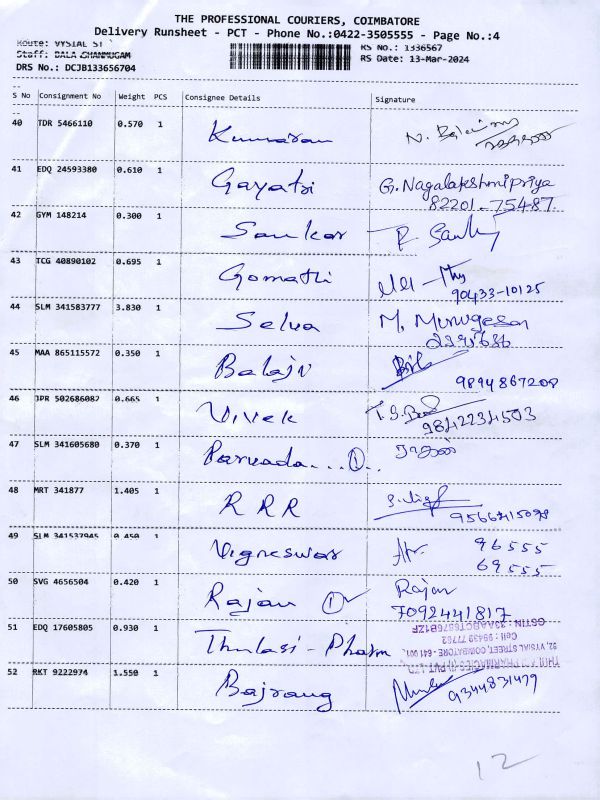 THE PROFESSIONAL COURIERS, COIMBATORE
Delivery Runsheet - PCT - Phone No.:0422-3505555 - Page No.:4
Route: VYSIAL ST
Staff: BALA SHANMUGAM
RS No.: 1336567
DRS No.: DCJB133656704
RS Date: 13-Mar-2024
S No Consignment No Weight PCS Consignee Details Signature
40 TDR 5466110 0.570 1 Kumaran
41 EDQ 24593380 0.610 1 Gayatri G. Nagalakshmipriya
82201-75487
42 GYM 148214 0.300 1 Sankar
43 TCG 40890102 0.695 1 Gomathi
90433-10125
44 SLM 341583777 3.830 1 Selva M. Murugesan
45 MAA 865115572 0.350 1 Balaji
9894867208
46 JPR 502686087 0.665 1 Vivek
9842234503
47 SLM 341605680 0.370 1
48 MRT 341877 1.405 1 RRR
49 SLM 341537945 0.450 1 Vigneswar 96555
69555
50 SVG 4656504 0.420 1 Rajan Rajan
7092441817
51 EDQ 17605805 0.930 1 Thulasi - Pharm
92, VYSIAL STREET, COIMBATORE - 641 001.
Cell : 99439 77762
52 RKT 9222974 1.550 1 Bajrang 9344831479
12